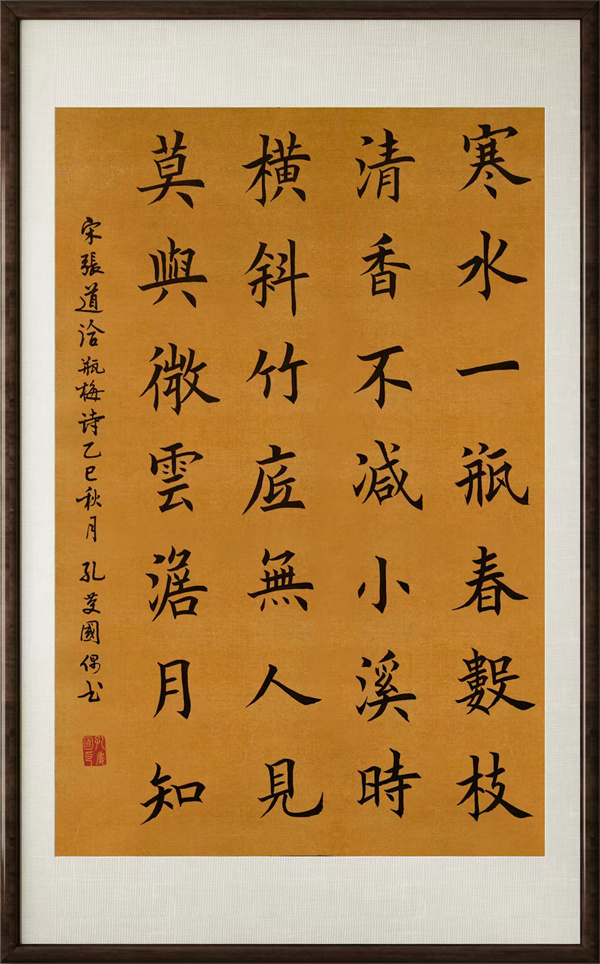 寒水一瓶春數枝
清香不減小溪時
橫斜竹底無人見
莫與微雲澹月知
宋張道洽瓶梅诗乙巳秋月 孔慶國偶书